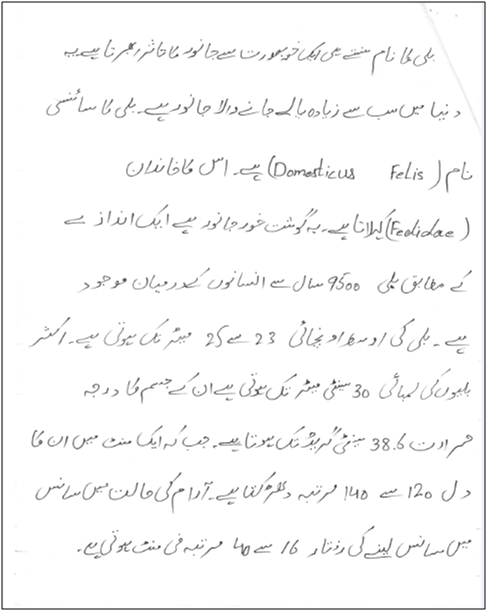 بلی کا نام سنتے ہی ایک خوبصورت سے جانور کا خاثر ابھرتا ہے یہ
دنیا میں سب سے زیادہ پالے جانے والا جانور ہے۔ بلی کا سائنسی
نام (Domesticus Felis) ہے۔ اس کا خاندان
(Feolidae) کہلاتا ہے۔ یہ گوشت خور جانور ہے ایک انداز ے
کے مطابق بلی 9500 سال سے انسانوں کے درمیان موجود
ہے ۔ بلی کی اوسط اونچائی 23 سے 25 میٹر تک ہوتی ہے۔ اکثر
بلیوں کی لمبائی 30 سینٹی میٹر تک ہوتی ہے ان کے جسم کا درجہ
حرارت 38.6 سینٹی گریڈ تک ہوتا ہے۔ جب کہ ایک منٹ میں ان کا
دل 120 سے 140 مرتبہ دھڑکتا ہے۔ آرام کی حالت میں سانس
میں سانس لینے کی رفتار 16 سے 40 مرتبہ فی منٹ ہوتی ہے۔